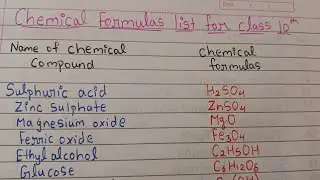 Chemical formulas list for class 10th
Name of chemical compound Chemical formulas
Sulphuric acid H₂SO₄
Zinc sulphate ZnSO₄
Magnesium oxide MgO
Ferric oxide Fe₃O₄
Ethyl alcohol C₂H5OH
Glucose C₆H₁₂O₆